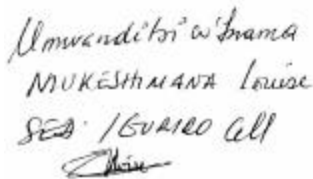 Umwanditsi w'Inama
MUKESHIMANA Louise
SED / GURIRO Cell